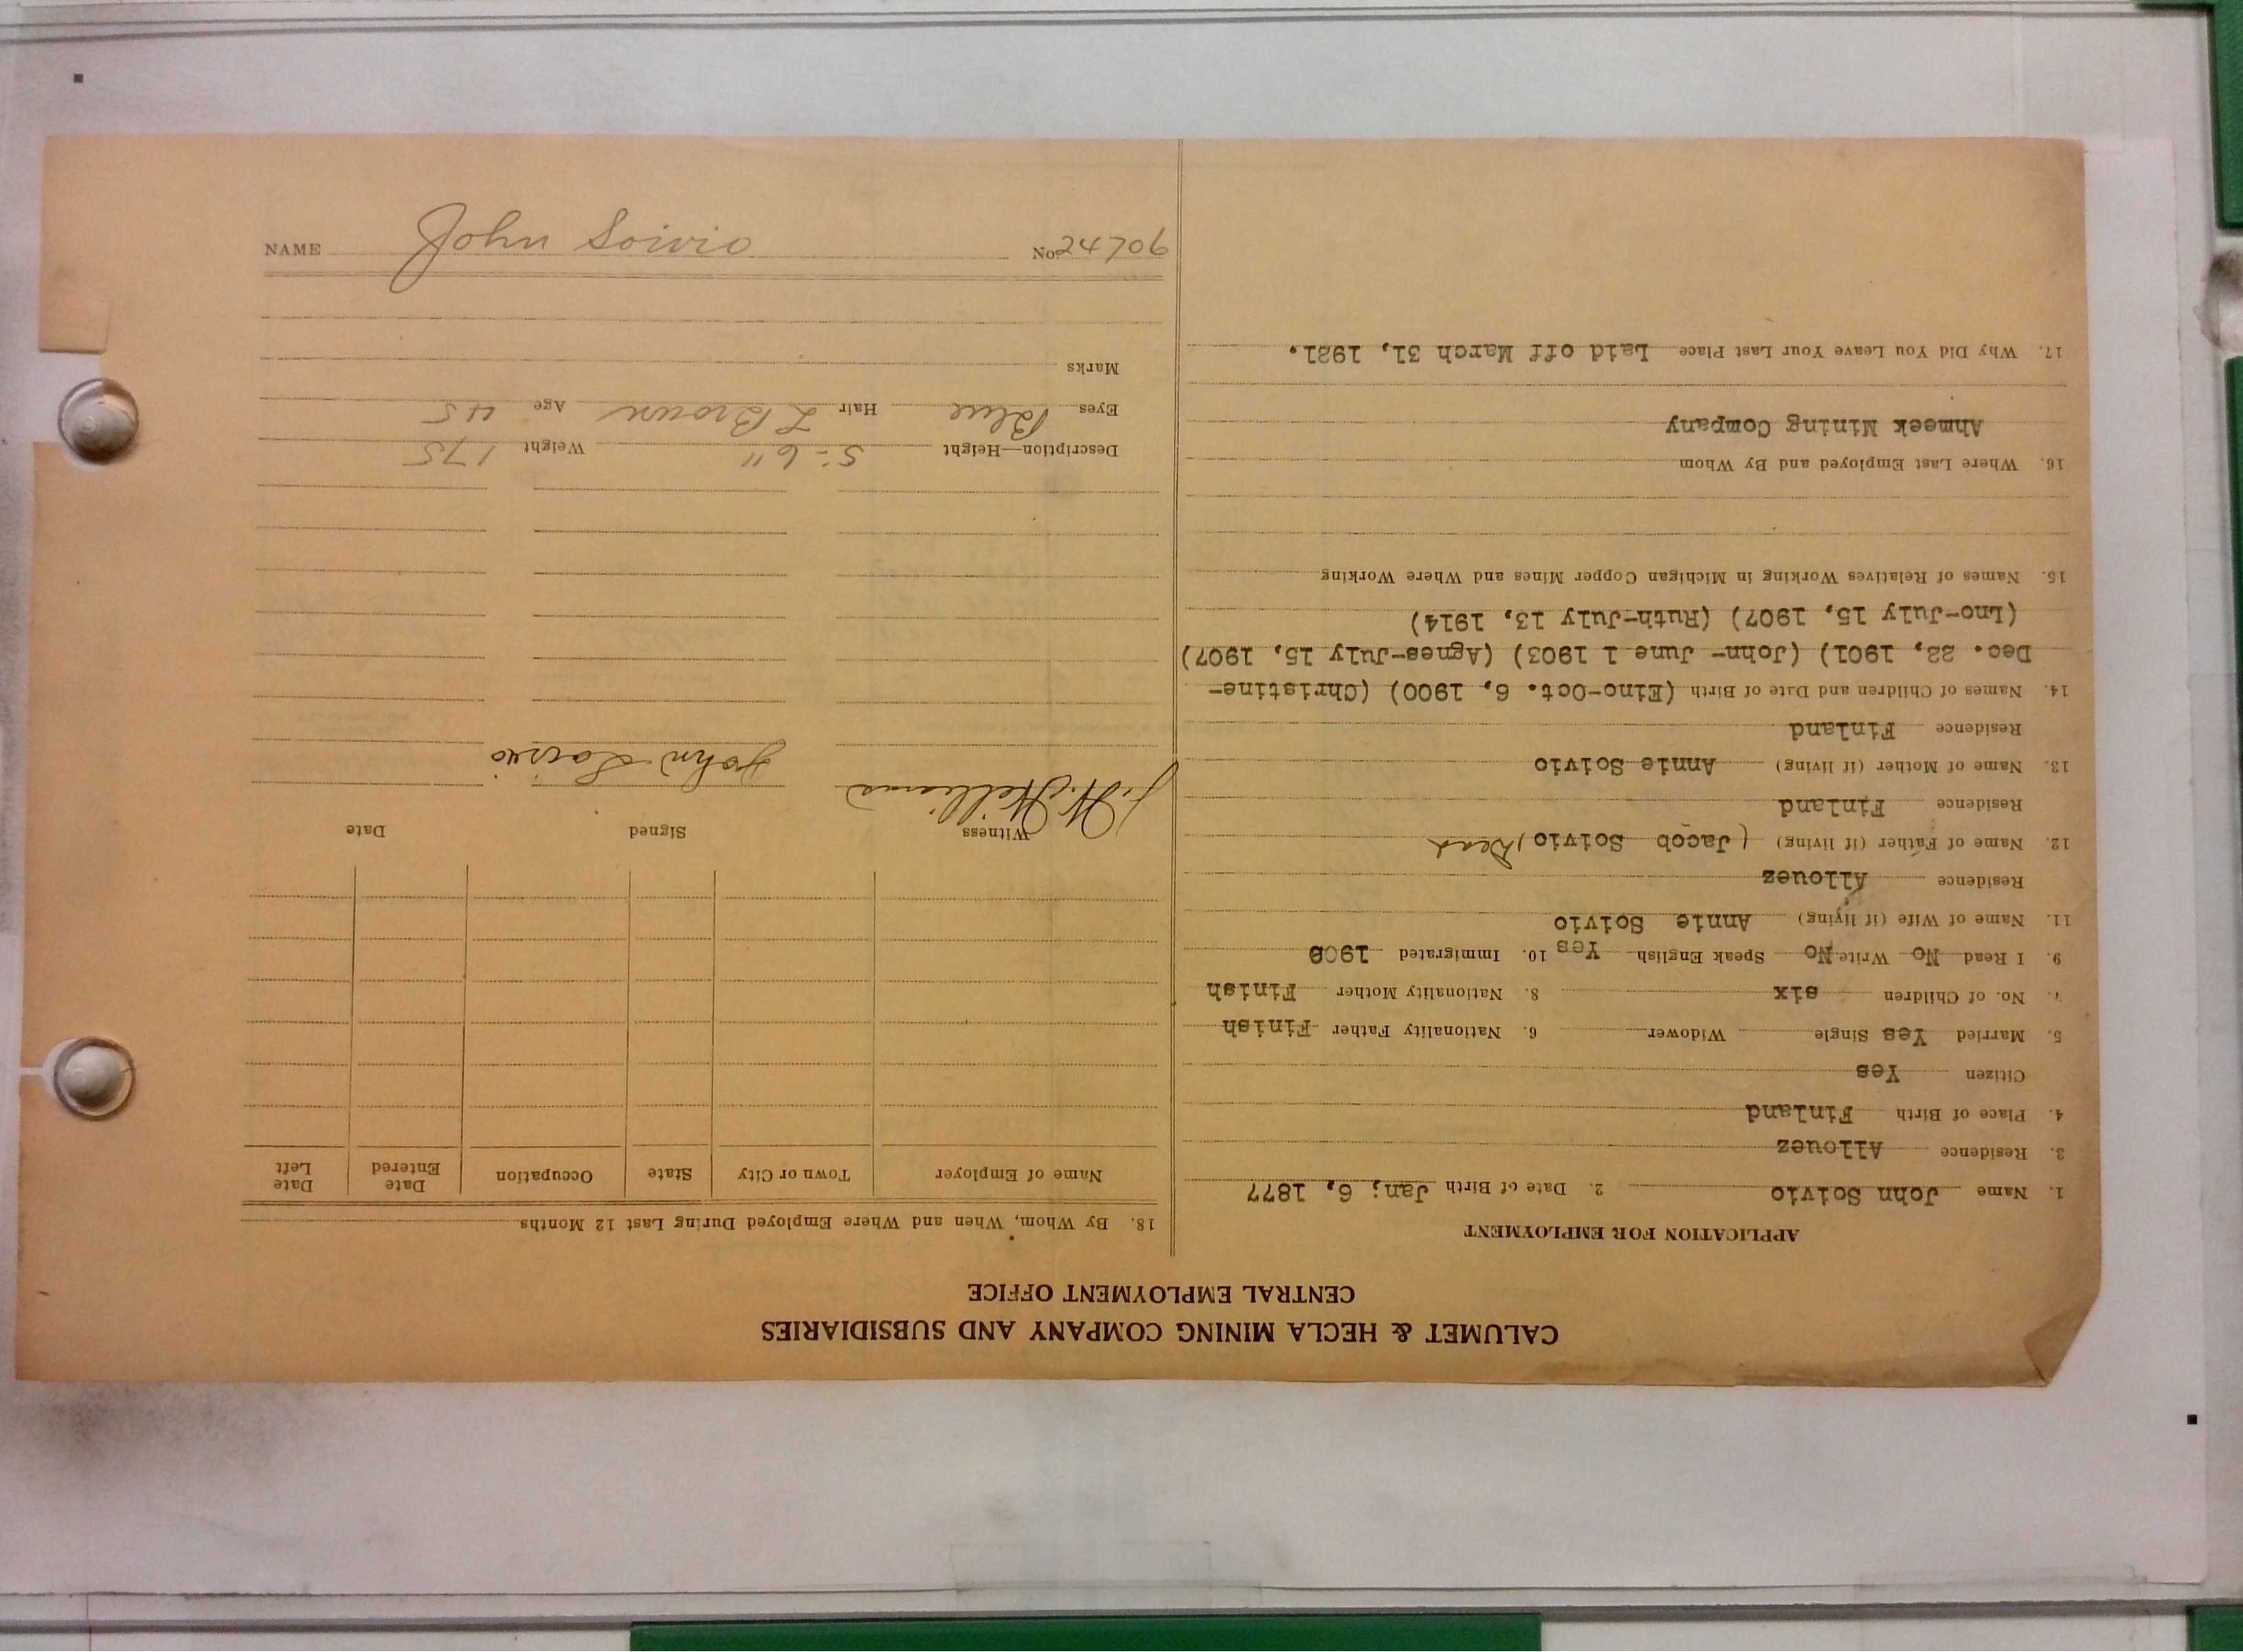 CALUMET & HECLA MINING COMPANY AND SUBSIDIARIES
CENTRAL EMPLOYMENT OFFICE
APPLICATION FOR EMPLOYMENT
1. Name John Soivio 2. Date of Birth Jan; 6, 1877
3. Residence Allouez
4. Place of Birth Finland
Citizen Yes
5. Married Yes Single Widower 6. Nationality Father Finish
7. No. of Children six 8. Nationality Mother Finish
9. I Read No Write No Speak English Yes 10. Immigrated
11. Name of Wife (if living) Annie Soivio
Residence Allouez
12. Name of Father (if living) (Jacob Soivio) Dead
Residence Finland
13. Name of Mother (if living) Annie Soivio
Residence Finland
14. Names of Children and Date of Birth (Eino-Oct. 6, 1900) (Christine-
Dec. 22, 1901) (John- June 1 1903) (Agnes-July 15, 1907)
(Lno-July 15, 1907) (Ruth-July 13, 1914)
15. Names of Relatives Working in Michigan Copper Mines and Where Working
16. Where Last Employed and By Whom
Ahmeek Mining Company
17. Why Did You Leave Your Last Place Laid off March 31, 1921.
18. By Whom, When and Where Employed During Last 12 Months
Name of Employer Town or City State Occupation Date Entered Date Left
Witness Signed Date
J. W. Williams John Soivio
Description—Height 5-6" Weight 175
Eyes Blue Hair L Brown Age 45
Marks
NAME John Soivio No. 24706